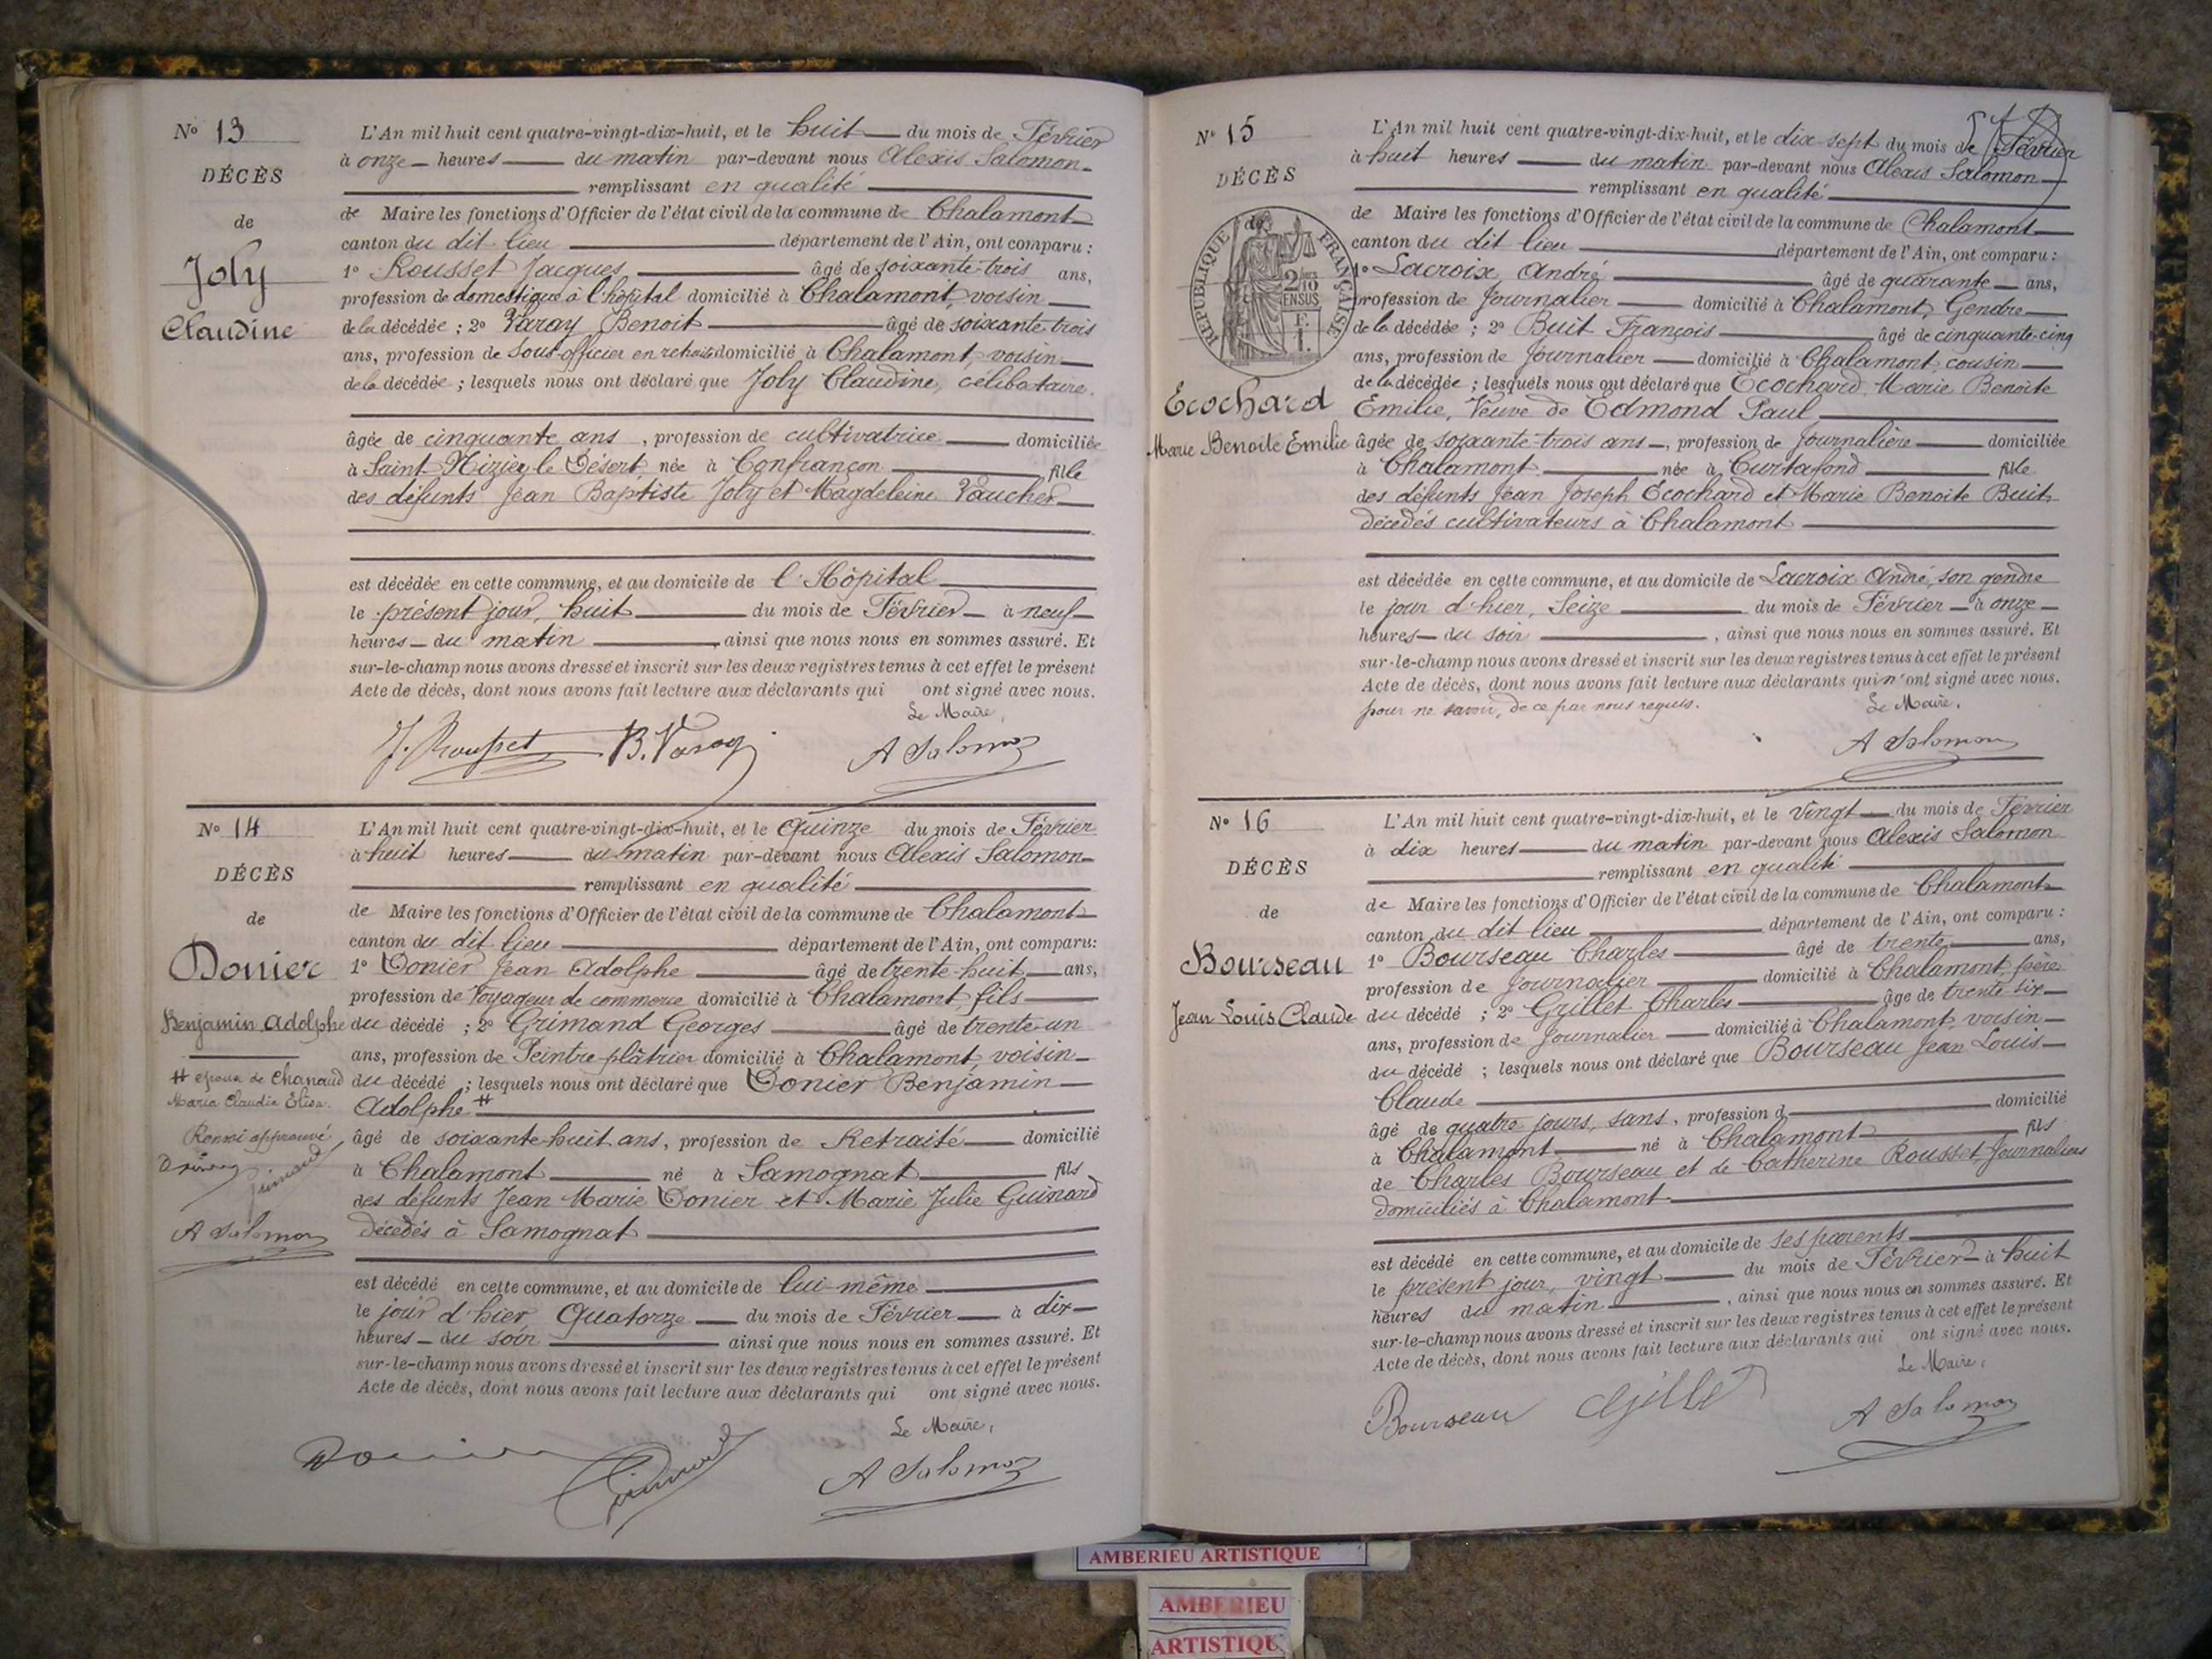 N° 13
DÉCÈS
de
Joly
Claudine
L'An mil huit cent quatre-vingt-dix-huit, et le huit du mois de Février
à onze heures du matin par-devant nous Alexis Salomon
remplissant en qualité
de Maire les fonctions d'Officier de l'état civil de la commune de Chalamont
canton du dit lieu département de l'Ain, ont comparu :
1° Rousset Jacques âgé de soixante-trois ans,
profession de domestique à l'hôpital domicilié à Chalamont, voisin
de la décédée ; 2° Varay Benoit âgé de soixante-trois
ans, profession de Sous-officier en retraite domicilié à Chalamont, voisin
de la décédée ; lesquels nous ont déclaré que Joly Claudine, célibataire
âgée de cinquante ans, profession de cultivatrice domiciliée
à Saint Nizier le Désert née à Confrançon fille
des défunts Jean Baptiste Joly et Magdeleine Vaucher
est décédée en cette commune, et au domicile de l'Hôpital
le présent jour, huit du mois de Février à neuf
heures du matin, ainsi que nous nous en sommes assuré. Et
sur-le-champ nous avons dressé et inscrit sur les deux registres tenus à cet effet le présent
Acte de décès, dont nous avons fait lecture aux déclarants qui ont signé avec nous.
Le Maire,
J. Rousset B. Varay A Salomon
N° 14
DÉCÈS
de
Donier
Benjamin Adolphe
# époux de Chanaud
Maria Claudia Elisa.
Renvoi approuvé
A Salomon
L'An mil huit cent quatre-vingt-dix-huit, et le Quinze du mois de Février
à huit heures du matin par-devant nous Alexis Salomon
remplissant en qualité
de Maire les fonctions d'Officier de l'état civil de la commune de Chalamont
canton du dit lieu département de l'Ain, ont comparu:
1° Donier Jean Adolphe âgé de trente-huit ans,
profession de Voyageur de commerce domicilié à Chalamont, fils
du décédé ; 2° Grimand Georges âgé de trente-un
ans, profession de Peintre-plâtrier domicilié à Chalamont, voisin
du décédé ; lesquels nous ont déclaré que Donier Benjamin
Adolphe #
âgé de soixante-huit ans, profession de Retraité domicilié
à Chalamont né à Samognat fils
des défunts Jean Marie Donier et Marie Julie Guinard
décédés à Samognat
est décédé en cette commune, et au domicile de lui-même
le jour d'hier, Quatorze du mois de Février à dix
heures du soir ainsi que nous nous en sommes assuré. Et
sur-le-champ nous avons dressé et inscrit sur les deux registres tenus à cet effet le présent
Acte de décès, dont nous avons fait lecture aux déclarants qui ont signé avec nous.
Le Maire,
A Salomon
N° 15
DÉCÈS
de
RÉPUBLIQUE FRANÇAISE
2/10
EN SUS
Ecochard
Marie Benoite Emilie
L'An mil huit cent quatre-vingt-dix-huit, et le dix sept du mois de Février
à huit heures du matin par-devant nous Alexis Salomon
remplissant en qualité
de Maire les fonctions d'Officier de l'état civil de la commune de Chalamont
canton du dit lieu département de l'Ain, ont comparu :
1° Lacroix André âgé de quarante ans,
profession de Journalier domicilié à Chalamont, Gendre
de la décédée ; 2° Buit François âgé de cinquante-cinq
ans, profession de Journalier domicilié à Chalamont, cousin
de la décédée ; lesquels nous ont déclaré que Ecochard Marie Benoite
Emilie, Veuve de Edmond Paul
âgée de soixante-trois ans, profession de Journalière domiciliée
à Chalamont née à Curtafond fille
des défunts Jean Joseph Ecochard et Marie Benoite Buit
décédés cultivateurs à Chalamont
est décédée en cette commune, et au domicile de Lacroix André, son gendre
le jour d'hier, Seize du mois de Février à onze
heures du soir, ainsi que nous nous en sommes assuré. Et
sur-le-champ nous avons dressé et inscrit sur les deux registres tenus à cet effet le présent
Acte de décès, dont nous avons fait lecture aux déclarants qui n'ont signé avec nous.
pour ne savoir, de ce par nous requis.
Le Maire,
A Salomon
N° 16
DÉCÈS
de
Bourseau
Jean Louis Claude
L'An mil huit cent quatre-vingt-dix-huit, et le vingt du mois de Février
à dix heures du matin par-devant nous Alexis Salomon
remplissant en qualité
de Maire les fonctions d'Officier de l'état civil de la commune de Chalamont
canton du dit lieu département de l'Ain, ont comparu :
1° Bourseau Charles âgé de trente ans,
profession de Journalier domicilié à Chalamont, père
du décédé ; 2° Grillet Charles âgé de trente six
ans, profession de Journalier domicilié à Chalamont, voisin
du décédé ; lesquels nous ont déclaré que Bourseau Jean Louis
Claude
âgé de quatre jours, sans, profession d domicilié
à Chalamont né à Chalamont fils
de Charles Bourseau et de Catherine Rousset, Journaliers
domiciliés à Chalamont
est décédé en cette commune, et au domicile de ses parents
le présent jour, vingt du mois de Février à huit
heures du matin, ainsi que nous nous en sommes assuré. Et
sur-le-champ nous avons dressé et inscrit sur les deux registres tenus à cet effet le présent
Acte de décès, dont nous avons fait lecture aux déclarants qui ont signé avec nous.
Le Maire,
Bourseau A Salomon
AMBERIEU ARTISTIQUE
AMBERIEU
ARTISTIQU